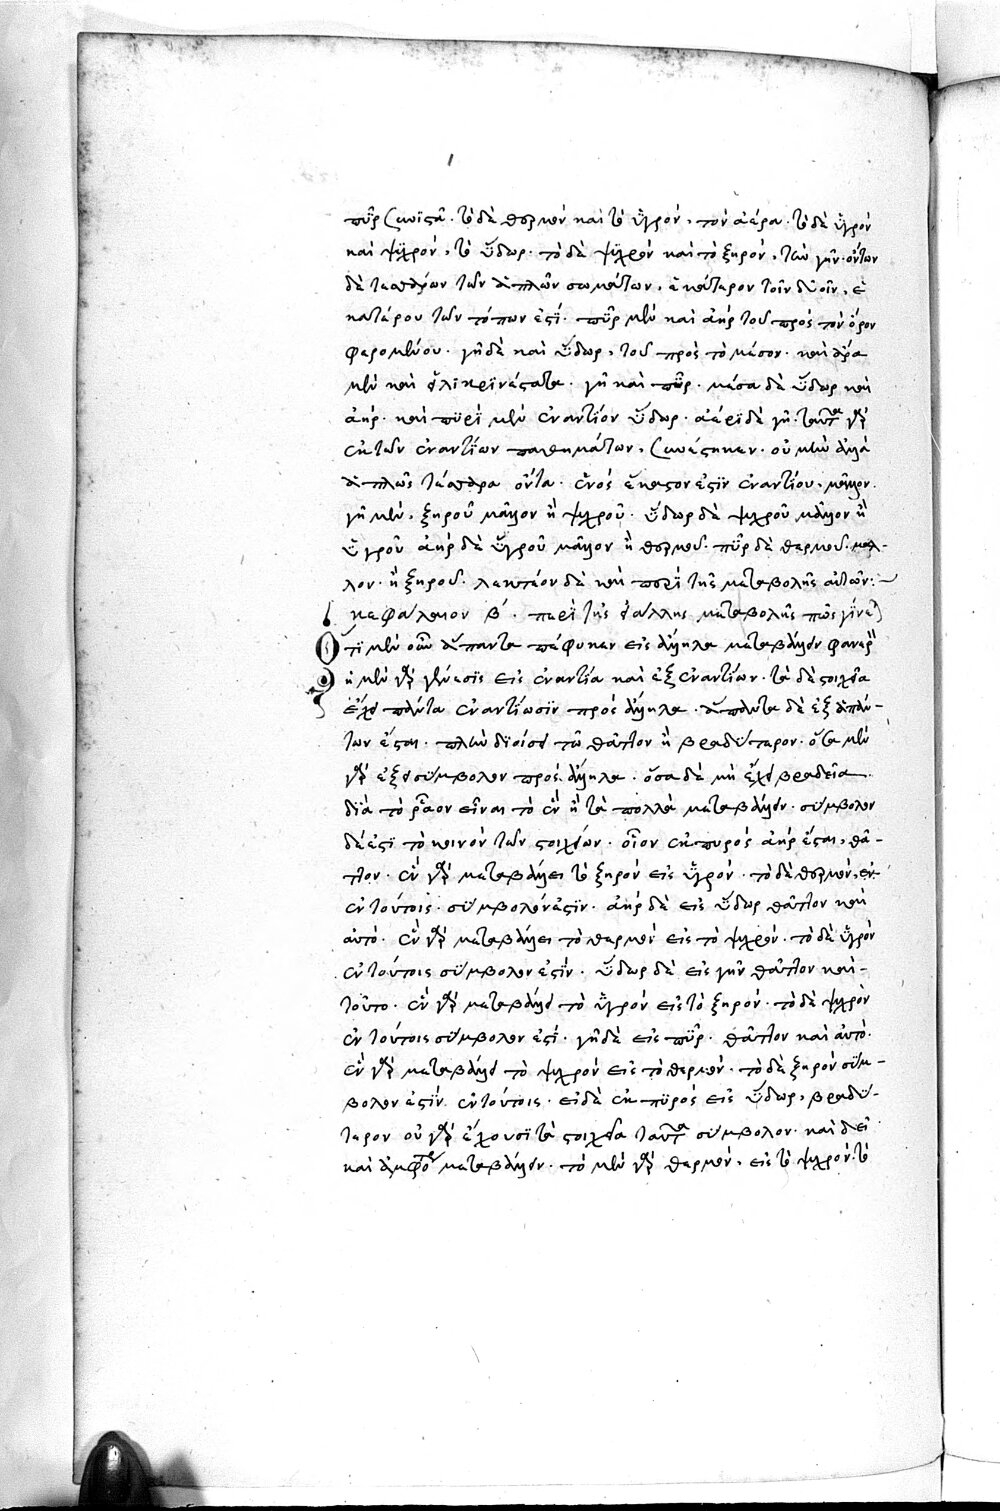 πῦρ συνιστᾶ· τὸ δὲ θερμὸν καὶ τὸ ὑγρὸν, τὸν ἀέρα· τὸ δὲ ὑγρὸν
καὶ ψυχρὸν, τὸ ὕδωρ· τὸ δὲ ψυχρὸν καὶ τὸ ξηρὸν, τὴν γῆν· ὄντων
δὲ τεσσάρων τῶν ἁπλῶν σωμάτων, ἑκάτερον τοῖν δυοῖν, ἑ
κατέρου τῶν τόπων ἐστί· πῦρ μὲν καὶ ἀὴρ τοῦ πρὸς τὸν ὅρον
φερομένου· γῆ δὲ καὶ ὕδωρ, τοῦ πρὸς τὸ μέσον· καὶ ἄκρα
μὲν καὶ εἰλικρινέστατα· γῆ καὶ πῦρ· μέσα δὲ ὕδωρ καὶ
ἀήρ· καὶ πυρὶ μὲν ἐναντίον ὕδωρ· ἀέρι δὲ γῆ· ταῦτα γὰρ
ἐκ τῶν ἐναντίων παθημάτων, συνέστηκεν· οὐ μὴν ἀλλὰ
ἁπλῶς τέσσαρα ὄντα· ἑνὸς ἕκαστον ἐστὶν ἐναντίου, μᾶλλον·
γῆ μὲν, ξηροῦ μᾶλλον ἢ ψυχροῦ· ὕδωρ δὲ ψυχροῦ μᾶλλον ἢ
ὑγροῦ ἀὴρ δὲ ὑγροῦ μᾶλλον ἢ θερμοῦ· πῦρ δὲ θερμοῦ μᾶλ-
λον· ἢ ξηροῦ· λεκτέον δὲ καὶ περὶ τῆς μεταβολῆς αὐτῶν:~
κεφάλαιον β´· περὶ τῆς εἰς ἄλληλα μεταβολῆς πῶς γίνεται
Ὅτι μὲν οὖν ἅπαντα πέφυκεν εἰς ἄλληλα μεταβάλλειν φανερὸν
ἡ μὲν γὰρ γένεσις εἰς ἐναντία καὶ ἐξ ἐναντίων· τὰ δὲ στοιχεῖα
ἔχει πάντα ἐναντίωσιν πρὸς ἄλληλα· ἅπαντα δὲ ἐξ ἁπάν-
των ἔσται· πλὴν διοίσει τῷ θᾶττον ἢ βραδύτερον· ὅσα μὲν
γὰρ ἔξει σύμβολον πρὸς ἄλληλα· ὅσα δὲ μὴ ἔχει βραδεῖα
διὰ τὸ ῥᾷον εἶναι τὸ ἓν ἢ τὰ πολλὰ μεταβάλλειν· σύμβολον
δὲ ἐστὶ τὸ κοινὸν τῶν στοιχείων· οἷον ἐκ πυρὸς ἀὴρ ἔσται, θᾶ-
ττον· ἓν γὰρ μεταβάλλει τὸ ξηρὸν εἰς ὑγρόν· τὸ δὲ θερμὸν, ἐν
ἐν τούτοις· σύμβολόν ἐστιν· ἀὴρ δὲ εἰς ὕδωρ θᾶττον καὶ
αὐτό· ἓν γὰρ μεταβάλλει τὸ θερμὸν εἰς τὸ ψυχρόν· τὸ δὲ ὑγρὸν
ἐν τούτοις σύμβολον ἐστίν· ὕδωρ δὲ εἰς γῆν θᾶττον καὶ-
τοῦτο· ἓν γὰρ μεταβάλλει τὸ ὑγρὸν εἰς τὸ ξηρόν· τὸ δὲ ψυχρὸν
ἐν τούτοις σύμβολον ἐστί· γῆ δὲ εἰς πῦρ· θᾶττον καὶ αὐτό·
ἓν γὰρ μεταβάλλει τὸ ψυχρὸν εἰς τὸ θερμόν· τὸ δὲ ξηρὸν σύμ-
βολον ἐστὶν ἐν τούτοις· εἰ δὲ ἐκ πυρὸς εἰς ὕδωρ, βραδύ-
τερον οὐ γὰρ ἔχουσι τὰ στοιχεῖα ταῦτα σύμβολον· καὶ δεῖ
καὶ ἀμφότερα μεταβάλλειν· τὸ μὲν γὰρ θερμὸν, εἰς τὸ ψυχρόν· τὸ